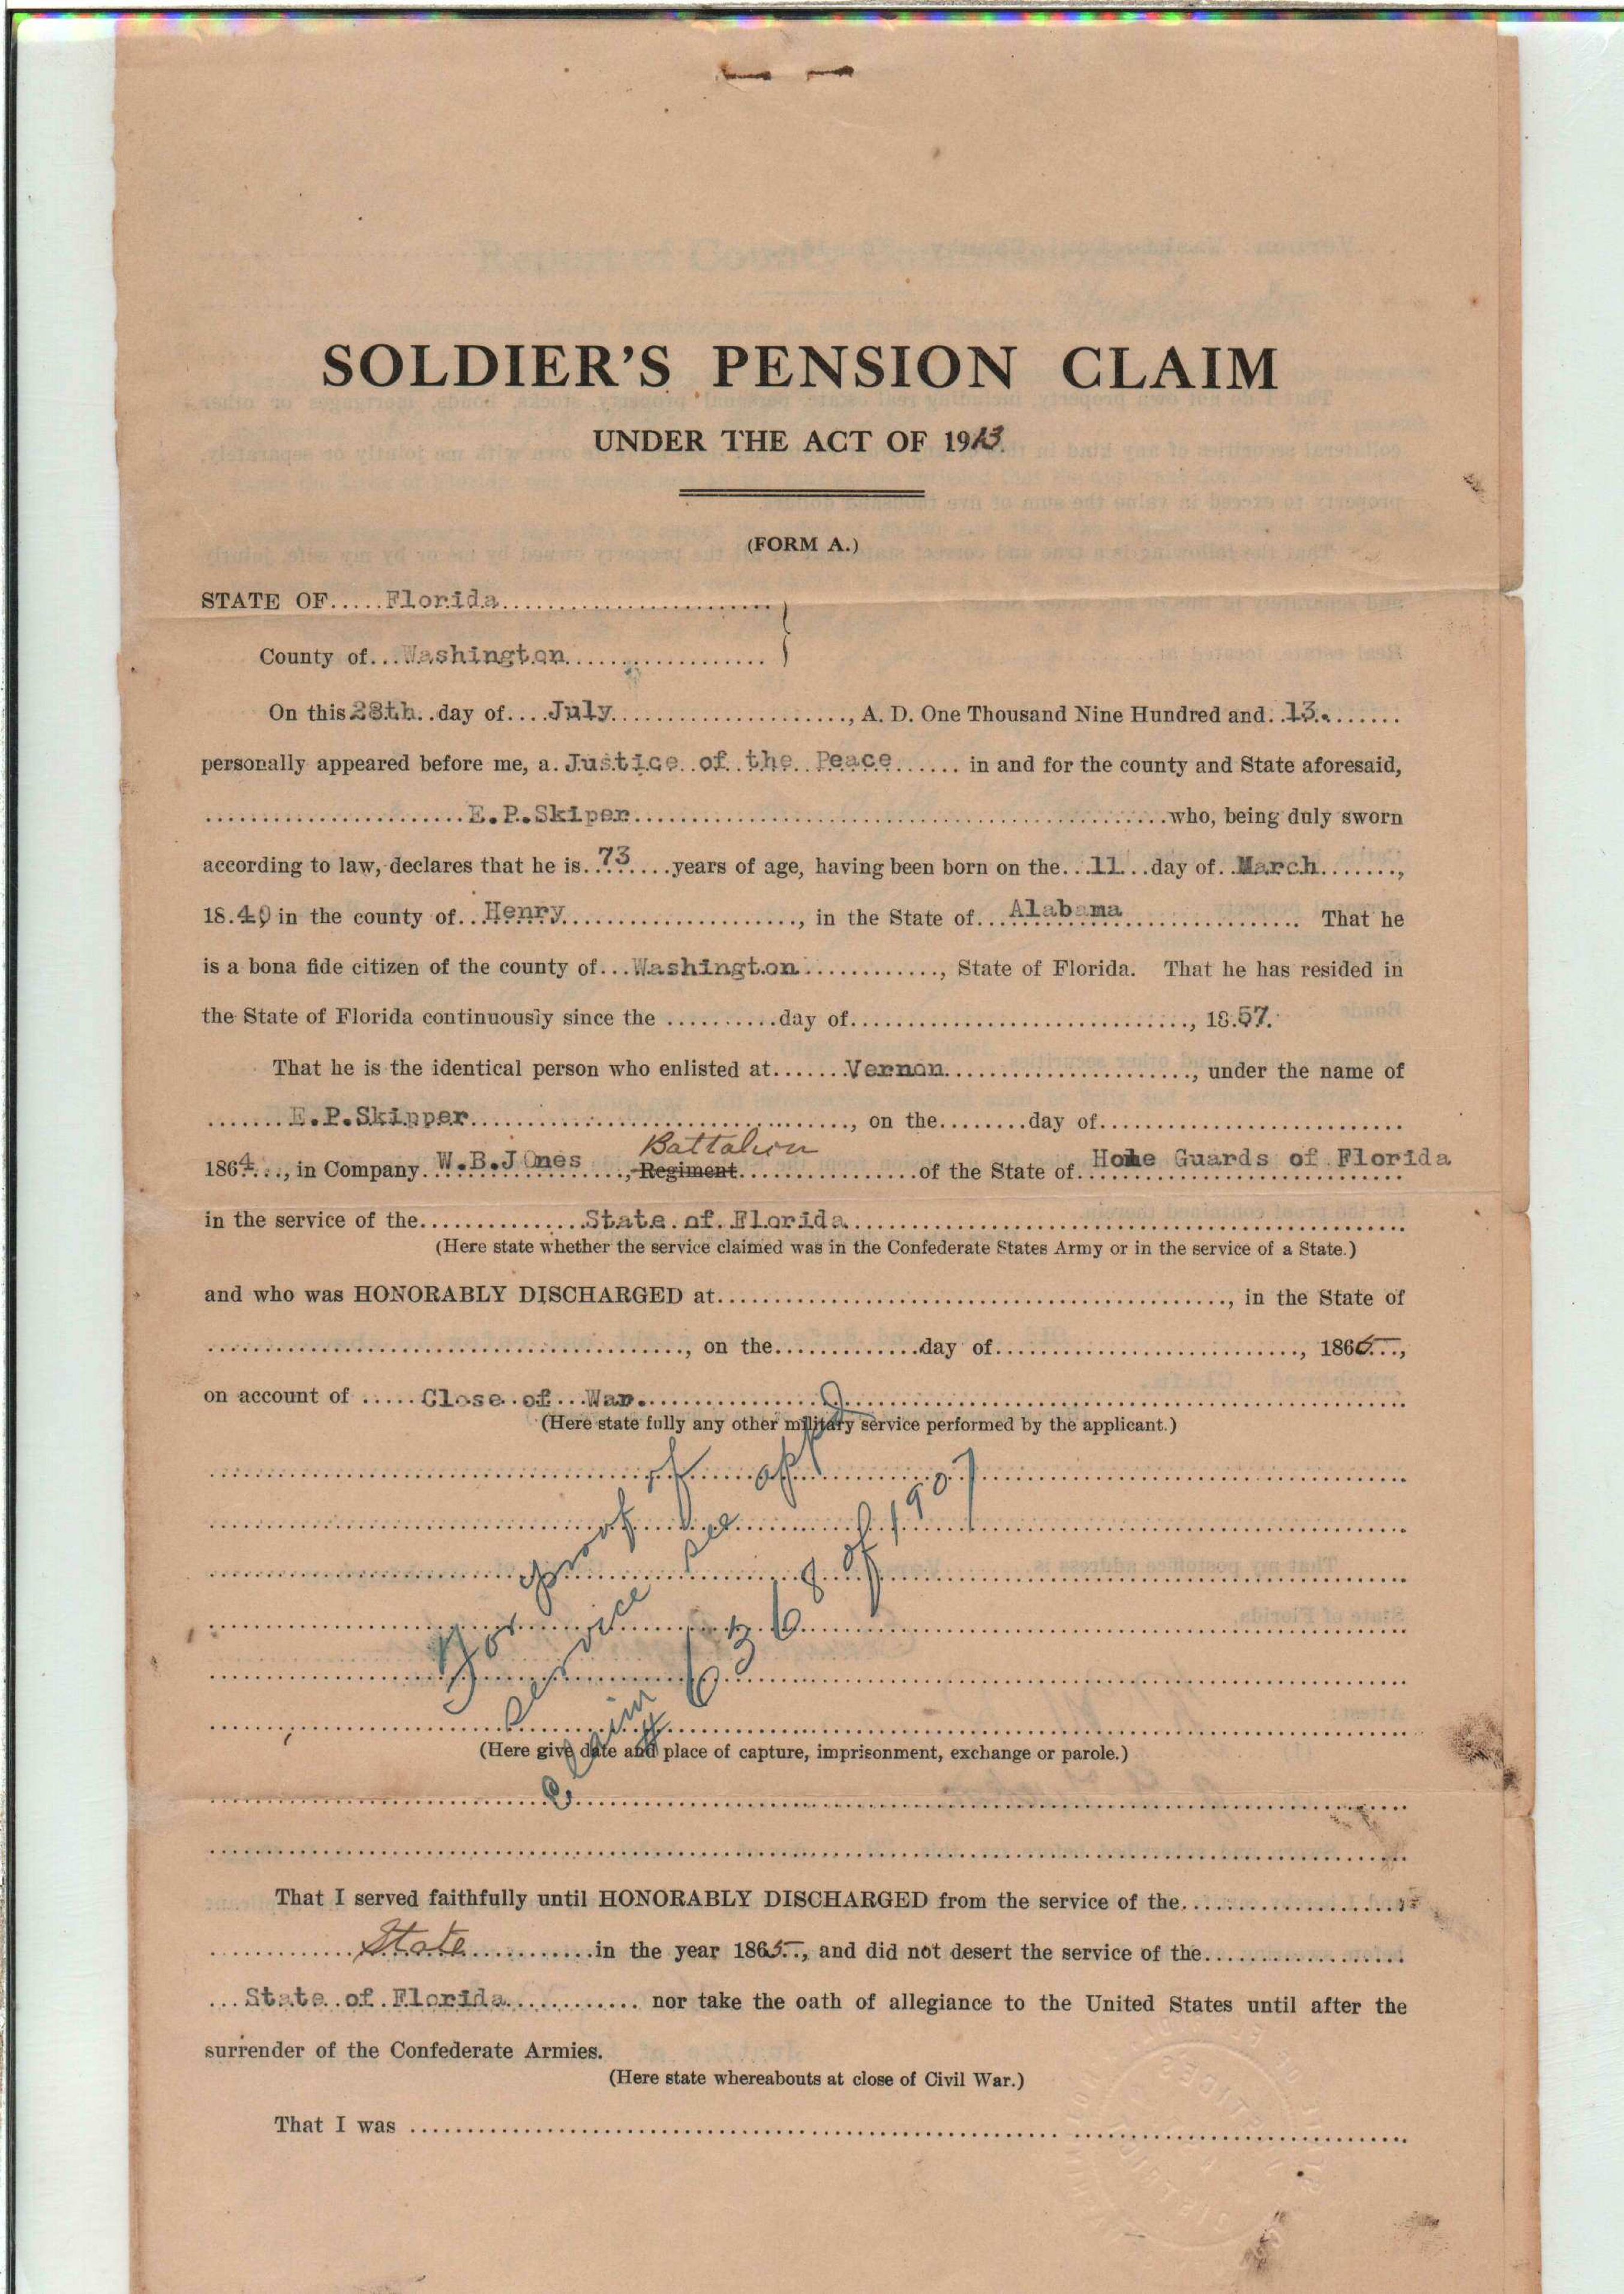 SOLDIER'S PENSION CLAIM
UNDER THE ACT OF 1913.
(FORM A.)
STATE OF.....Florida
County of...Washington
On this 28th day of....July, A. D. One Thousand Nine Hundred and..13.
personally appeared before me, a Justice of the Peace in and for the county and State aforesaid,
E.P.Skiper who, being duly sworn
according to law, declares that he is 73 years of age, having been born on the 11 day of March,
1840 in the county of Henry, in the State of Alabama. That he
is a bona fide citizen of the county of Washington, State of Florida. That he has resided in
the State of Florida continuously since the day of, 1857.
That he is the identical person who enlisted at Vernon, under the name of
E.P.Skipper, on the day of
Battalion
1864, in Company W.B.JOnes, Regiment of the State of Home Guards of Florida
in the service of the State of Florida
(Here state whether the service claimed was in the Confederate States Army or in the service of a State.)
and who was HONORABLY DISCHARGED at, in the State of
, on the day of, 1865,
on account of Close of War.
(Here state fully any other military service performed by the applicant.)
of 1907
proof
service
(Here give date and place of capture, imprisonment, exchange or parole.)
That I served faithfully until HONORABLY DISCHARGED from the service of the
State in the year 1865, and did not desert the service of the
State of Florida nor take the oath of allegiance to the United States until after the
surrender of the Confederate Armies.
(Here state whereabouts at close of Civil War.)
That I was